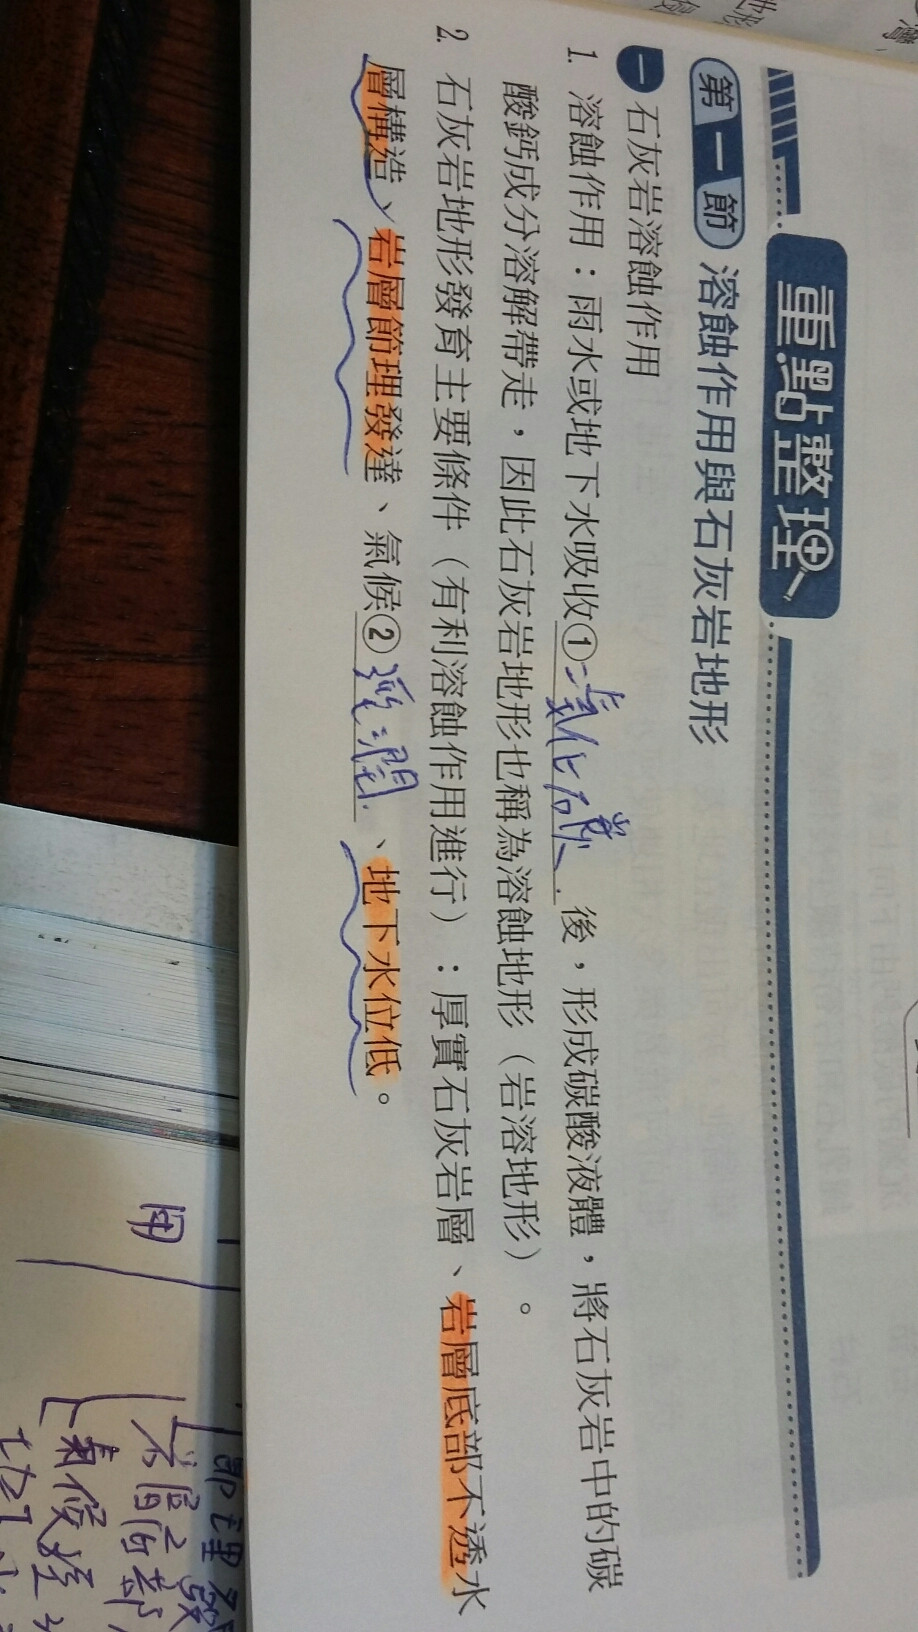 重點整理
第一節 溶蝕作用與石灰岩地形
一 石灰岩溶蝕作用
1. 溶蝕作用：雨水或地下水吸收①二氧化碳後，形成碳酸液體，將石灰岩中的碳
酸鈣成分溶解帶走，因此石灰岩地形也稱為溶蝕地形（岩溶地形）。
2. 石灰岩地形發育主要條件（有利溶蝕作用進行）：厚實石灰岩層、岩層底部不透水
層構造、岩層節理發達、氣候②溼潤、地下水位低。
用
節理發
底部
氣候溼